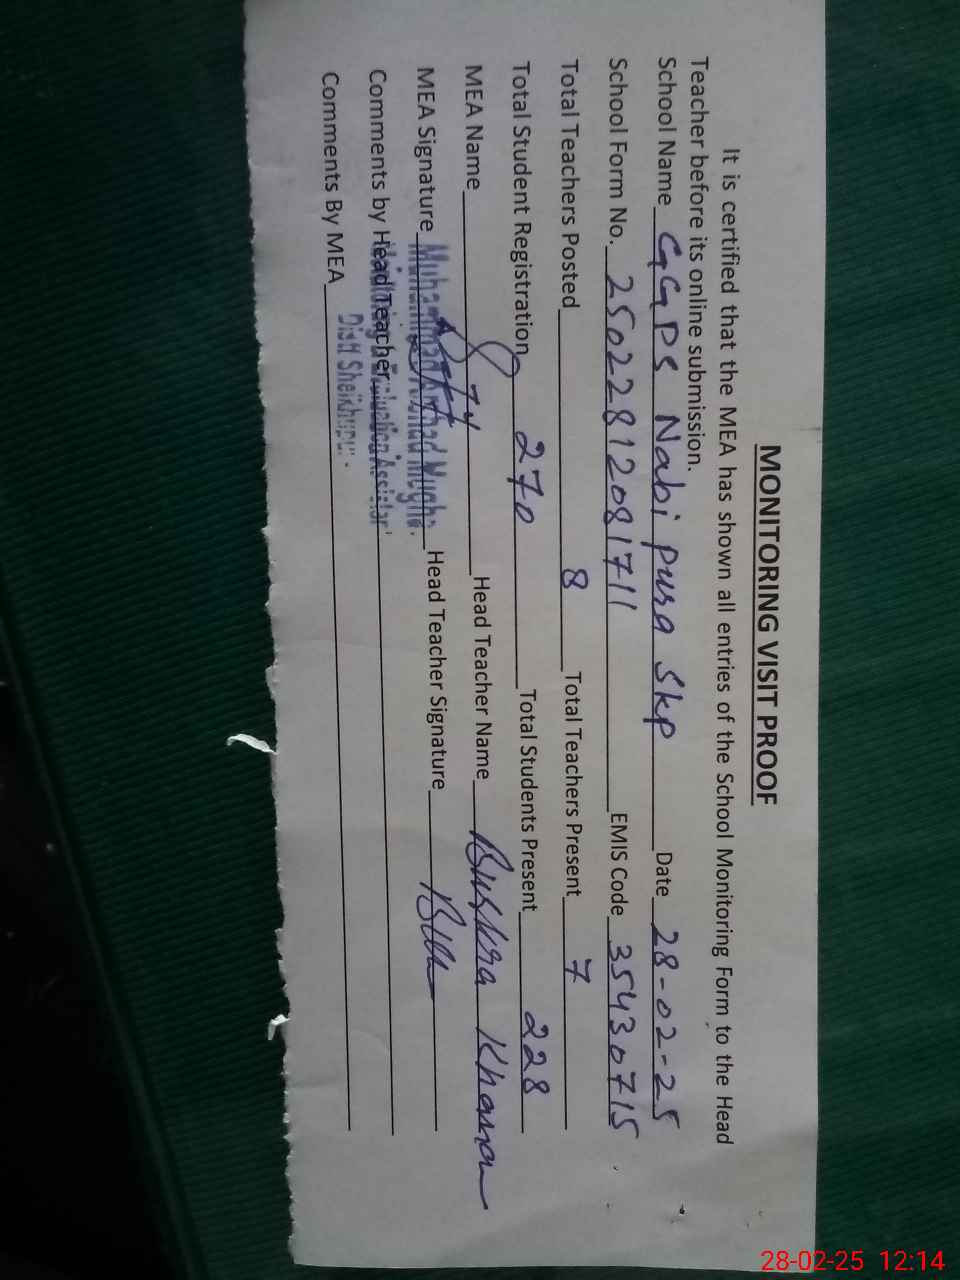 MONITORING VISIT PROOF
It is certified that the MEA has shown all entries of the School Monitoring Form to the Head
Teacher before its online submission.
School Name GGPS Nabi pura Skp Date 28-02-25
School Form No. 25022812081711 EMIS Code 35430715
Total Teachers Posted 8 Total Teachers Present 7
Total Student Registration 270 Total Students Present 228
MEA Name 874 Head Teacher Name Bushra Khanam
MEA Signature Muhammad Arshad Mughal Head Teacher Signature
Comments by Head Teacher Monitoring Evaluation Assistant
Comments By MEA Distt Sheikhupura
28-02-25 12:14